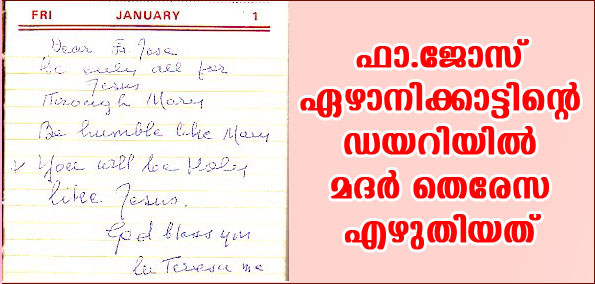 FRI JANUARY 1
Dear Fr Jose
be only all for
Jesus
through Mary
Be humble like Mary
You will be Holy
like Jesus.
God bless you
lu Teresa mc
ഫാ.ജോസ്
ഏഴാനിക്കാട്ടിന്റെ
ഡയറിയിൽ
മദർ തെരേസ
എഴുതിയത്